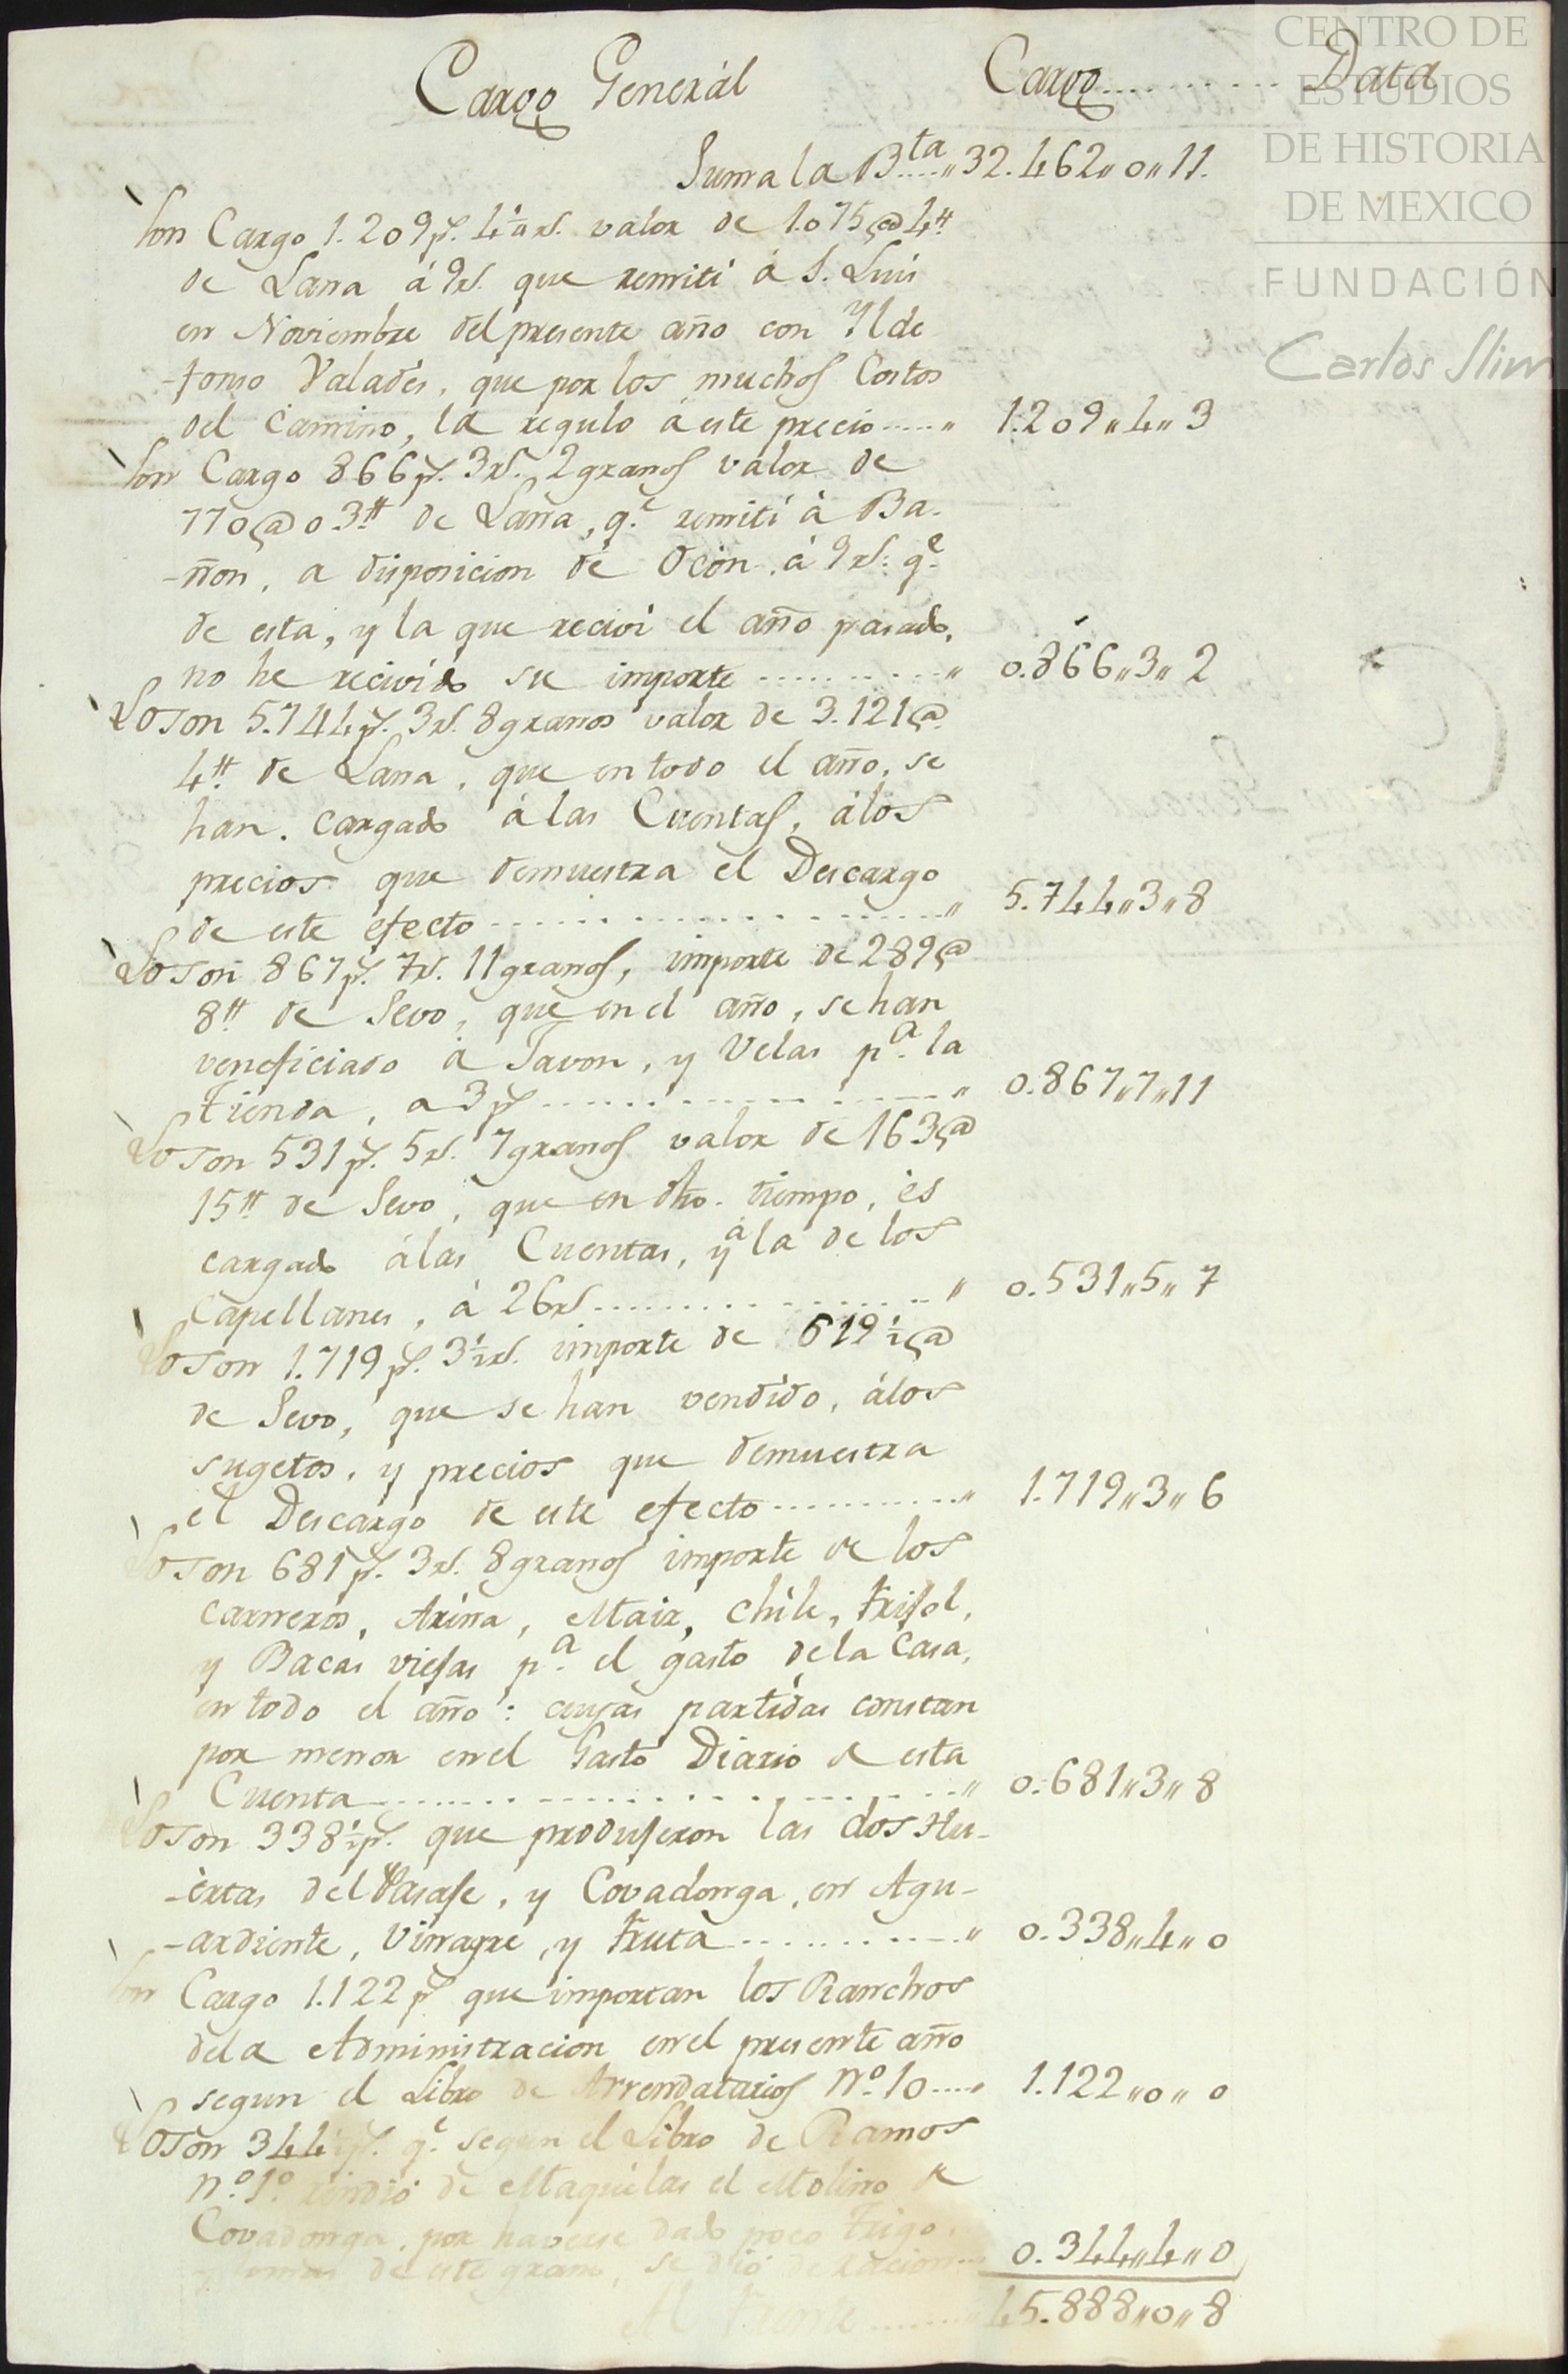 CENTRO DE
ESTUDIOS
DE HISTORIA
DE MEXICO
FUNDACIÓN
Carlos Slim
Cargo Generál Cargo.......... Data
Suma la B.ta....„32.462„0„11.
Son Cargo 1.209 p.s 4½ rs. valor de 1.075@ 4tt
de Lana á 9 rs. que remiti á S. Luis
en Noviembre del presente año con Ylde
-fonso Valadés, que por los muchos Costos
del Camino, la regulo á este precio.....„ 1.209„4„3
Son Cargo 866 p.s 3 rs. 2 granos valor de
770@ 03tt de Lana, q.e remiti á Ba-
-ñon, a disposicion de Ocón, á 9 rs: q.e
de esta, y la que recivi el año pasado,
no he recivido su importe..........„ 0.866„3„2
Lo son 5.744 p.s 3 rs. 8 granos valor de 3.121@
4tt de Lana, que en todo el año, se
han cargado á las Cuentas, á los
precios que demuestra el Descargo
de este efecto....................„ 5.744„3„8
Lo son 867 p.s 7 rs. 11 granos, importe de 289@
8tt de Sevo, que en el año, se han
veneficiado á Javon, y Velas p.a la
tienda, a 3 p.s....................„ 0.867„7„11
Lo son 531 p.s 5 rs. 7 granos valor de 163@
15tt de Sevo, que en dho. tiempo, és
cargado á las Cuentas, y á la de los
Capellanes, á 26 rs....................„ 0.531„5„7
Lo son 1.719 p.s 3½ rs. importe de 619½@
de Sevo, que se han vendido, á los
sugetos, y precios que demuestra
el Descargo de este efecto............„ 1.719„3„6
Lo son 681 p.s 3 rs. 8 granos importe de los
Carneros, Arina, Maiz, Chile, Frijol,
y Bacas viejas p.a el gasto de la Casa,
en todo el año: cuyas partidas constan
por menor en el Gasto Diario de esta
Cuenta....................„ 0.681„3„8
Lo son 338½ p.s que produjeron las dos Hu-
-ertas del Pasaje, y Covadonga, en Agu-
-ardiente, Vinagre, y Fruta............„ 0.338„4„0
Son Cargo 1.122 p.s que importan los Ranchos
de la Administracion en el presente año
segun el Libro de Arrendatarios N.o 10....„ 1.122„0„0
Lo son 344½ p.s q.e segun el Libro de Ramos
N.o 1.o rindió de Maquilas el Molino de
Covadonga, por haverse dado poco Trigo,
de este grano, se dió de racion... 0.344„4„0
Al Frente.......„ 45.888„0„8